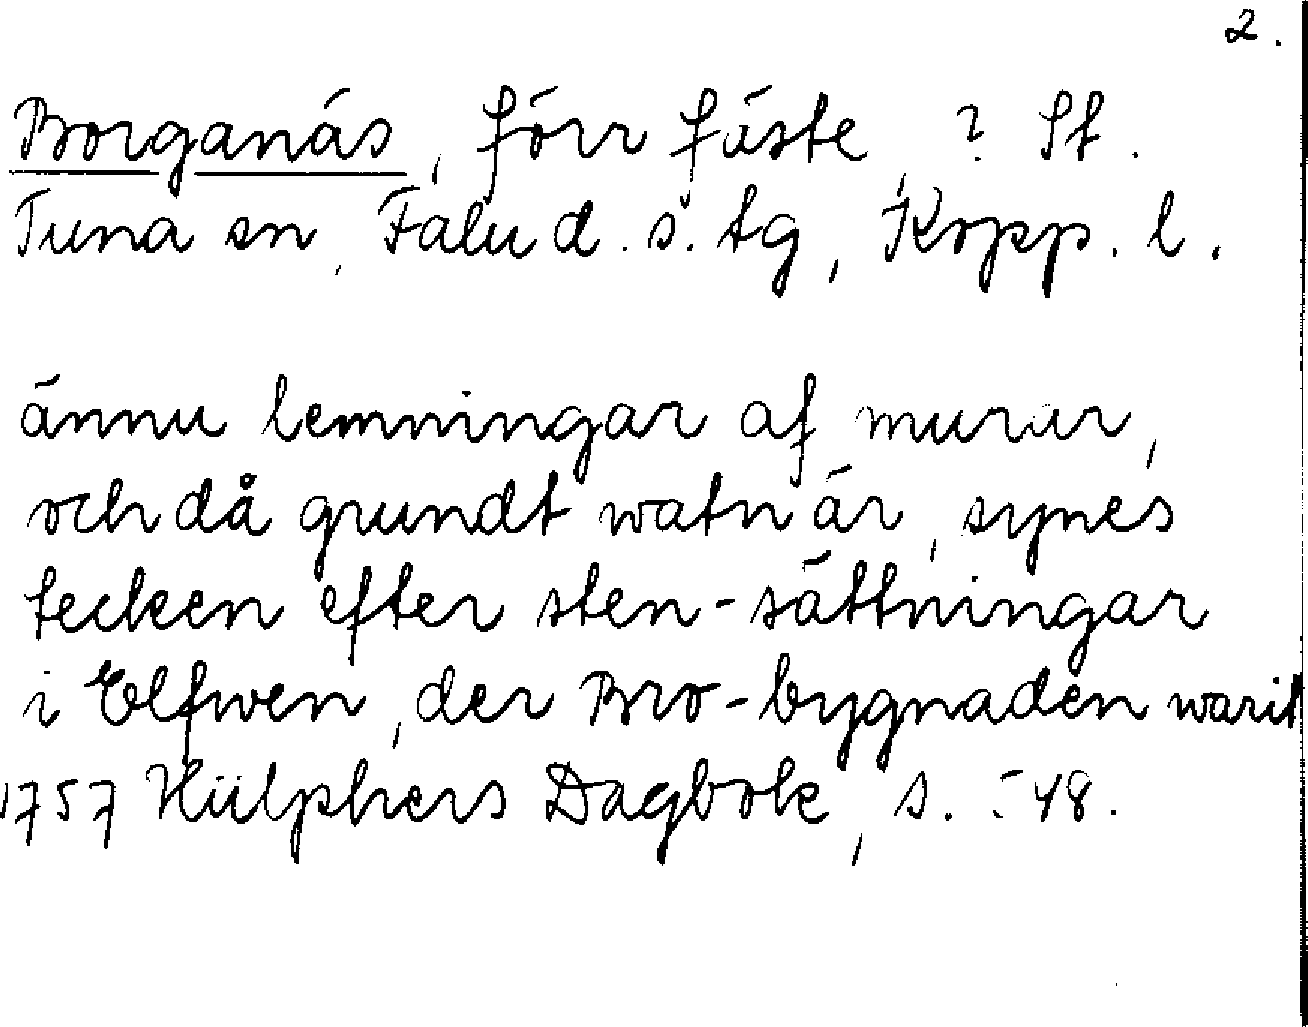 2.
Borganäs, förr fäste, ? St.
Tuna sn, Falu d.s. tg, Kopp. l.
ännu lemningar af murar,
och då grundt watn är, synes
tecken efter sten-sättningar
i Elfwen, der Bro-bygnaden warit
1757 Hülphers Dagbok, s. 48.